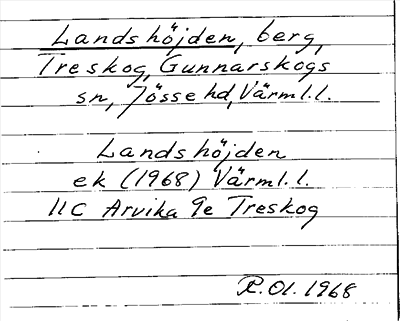 Landshöjden, berg,
Treskog, Gunnarskogs
sn, Jösse hd, Värml.l.
Landshöjden
ek (1968) Värml.l.
11C Arvika 9e Treskog
R.Ol. 1968